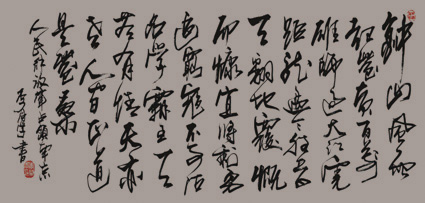 鍾山風雨
起蒼黃百萬
雄師過大江虎
踞龍盤今勝昔
天翻地覆慨
而慷宜將剩勇
追窮寇不可沽
名學霸王天
若有情天亦
老人間正道
是滄桑
人民解放軍占領南京
書